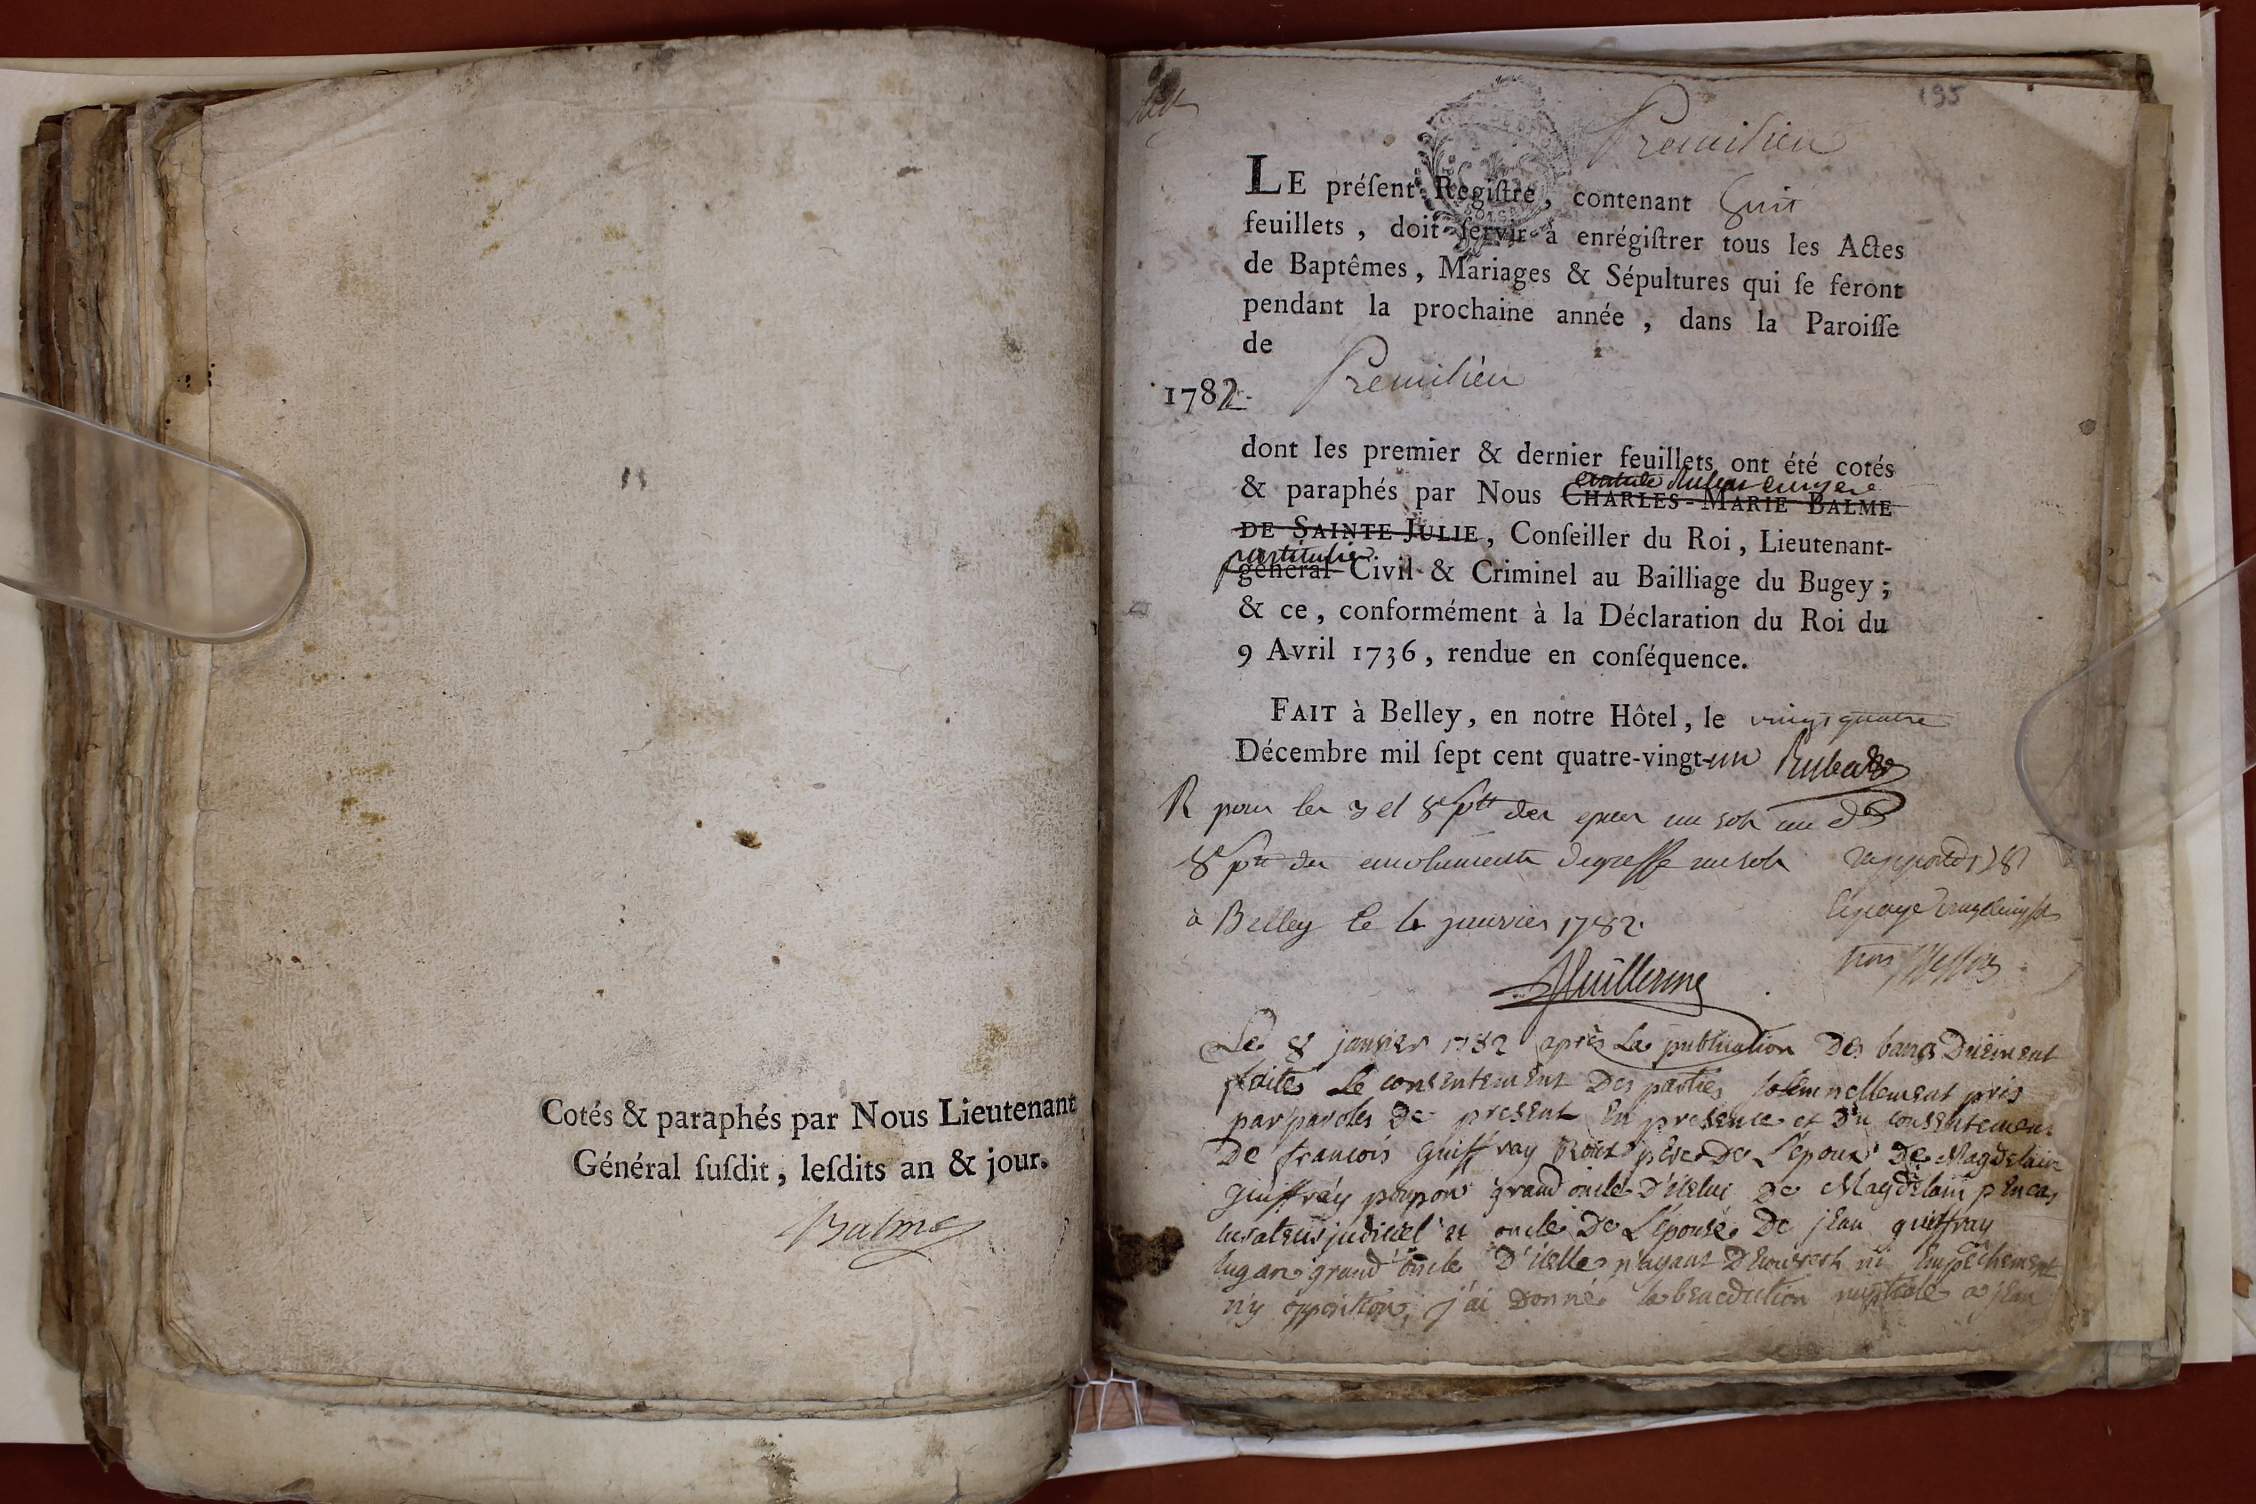 Cotés & paraphés par Nous Lieutenant
Général ſuſdit, leſdits an & jour.
Balme
195
Premilieu
LE préſent Regiſtre, contenant huit
feuillets, doit ſervir à enrégiſtrer tous les Actes
de Baptêmes, Mariages & Sépultures qui ſe feront
pendant la prochaine année, dans la Paroiſſe
de
1782. Premilieu
dont les premier & dernier feuillets ont été cotés
& paraphés par Nous CHARLES-MARIE BALME
DE SAINTE JULIE, Conſeiller du Roi, Lieutenant-
particulier
général Civil & Criminel au Bailliage du Bugey;
& ce, conformément à la Déclaration du Roi du
9 Avril 1736, rendue en conſéquence.
FAIT à Belley, en notre Hôtel, le vingt quatre
Décembre mil ſept cent quatre-vingt-un Rubat
R pour les 3 et 8 un sol
8 des emoluments de greffe un sol
à Belley le janvier 1782.
Guillerme
Le 8 janvier 1782 après La publication Des bans Duëment
faite Le consentement Des parties solemnellement pris
par paroles De present En presence et Du consentement
De francois Guiffray Roux père De L'époux De Magdelain
Guiffray poupon grand oncle D'icelui De Magdelain pencas
curateur judiciel et oncle De L'épouse De jean guiffray
lugan grand oncle D'icelle n'ayant Decouvert ni Empêchement
n'y opposition, j'ai Donné la benediction nuptiale a jean